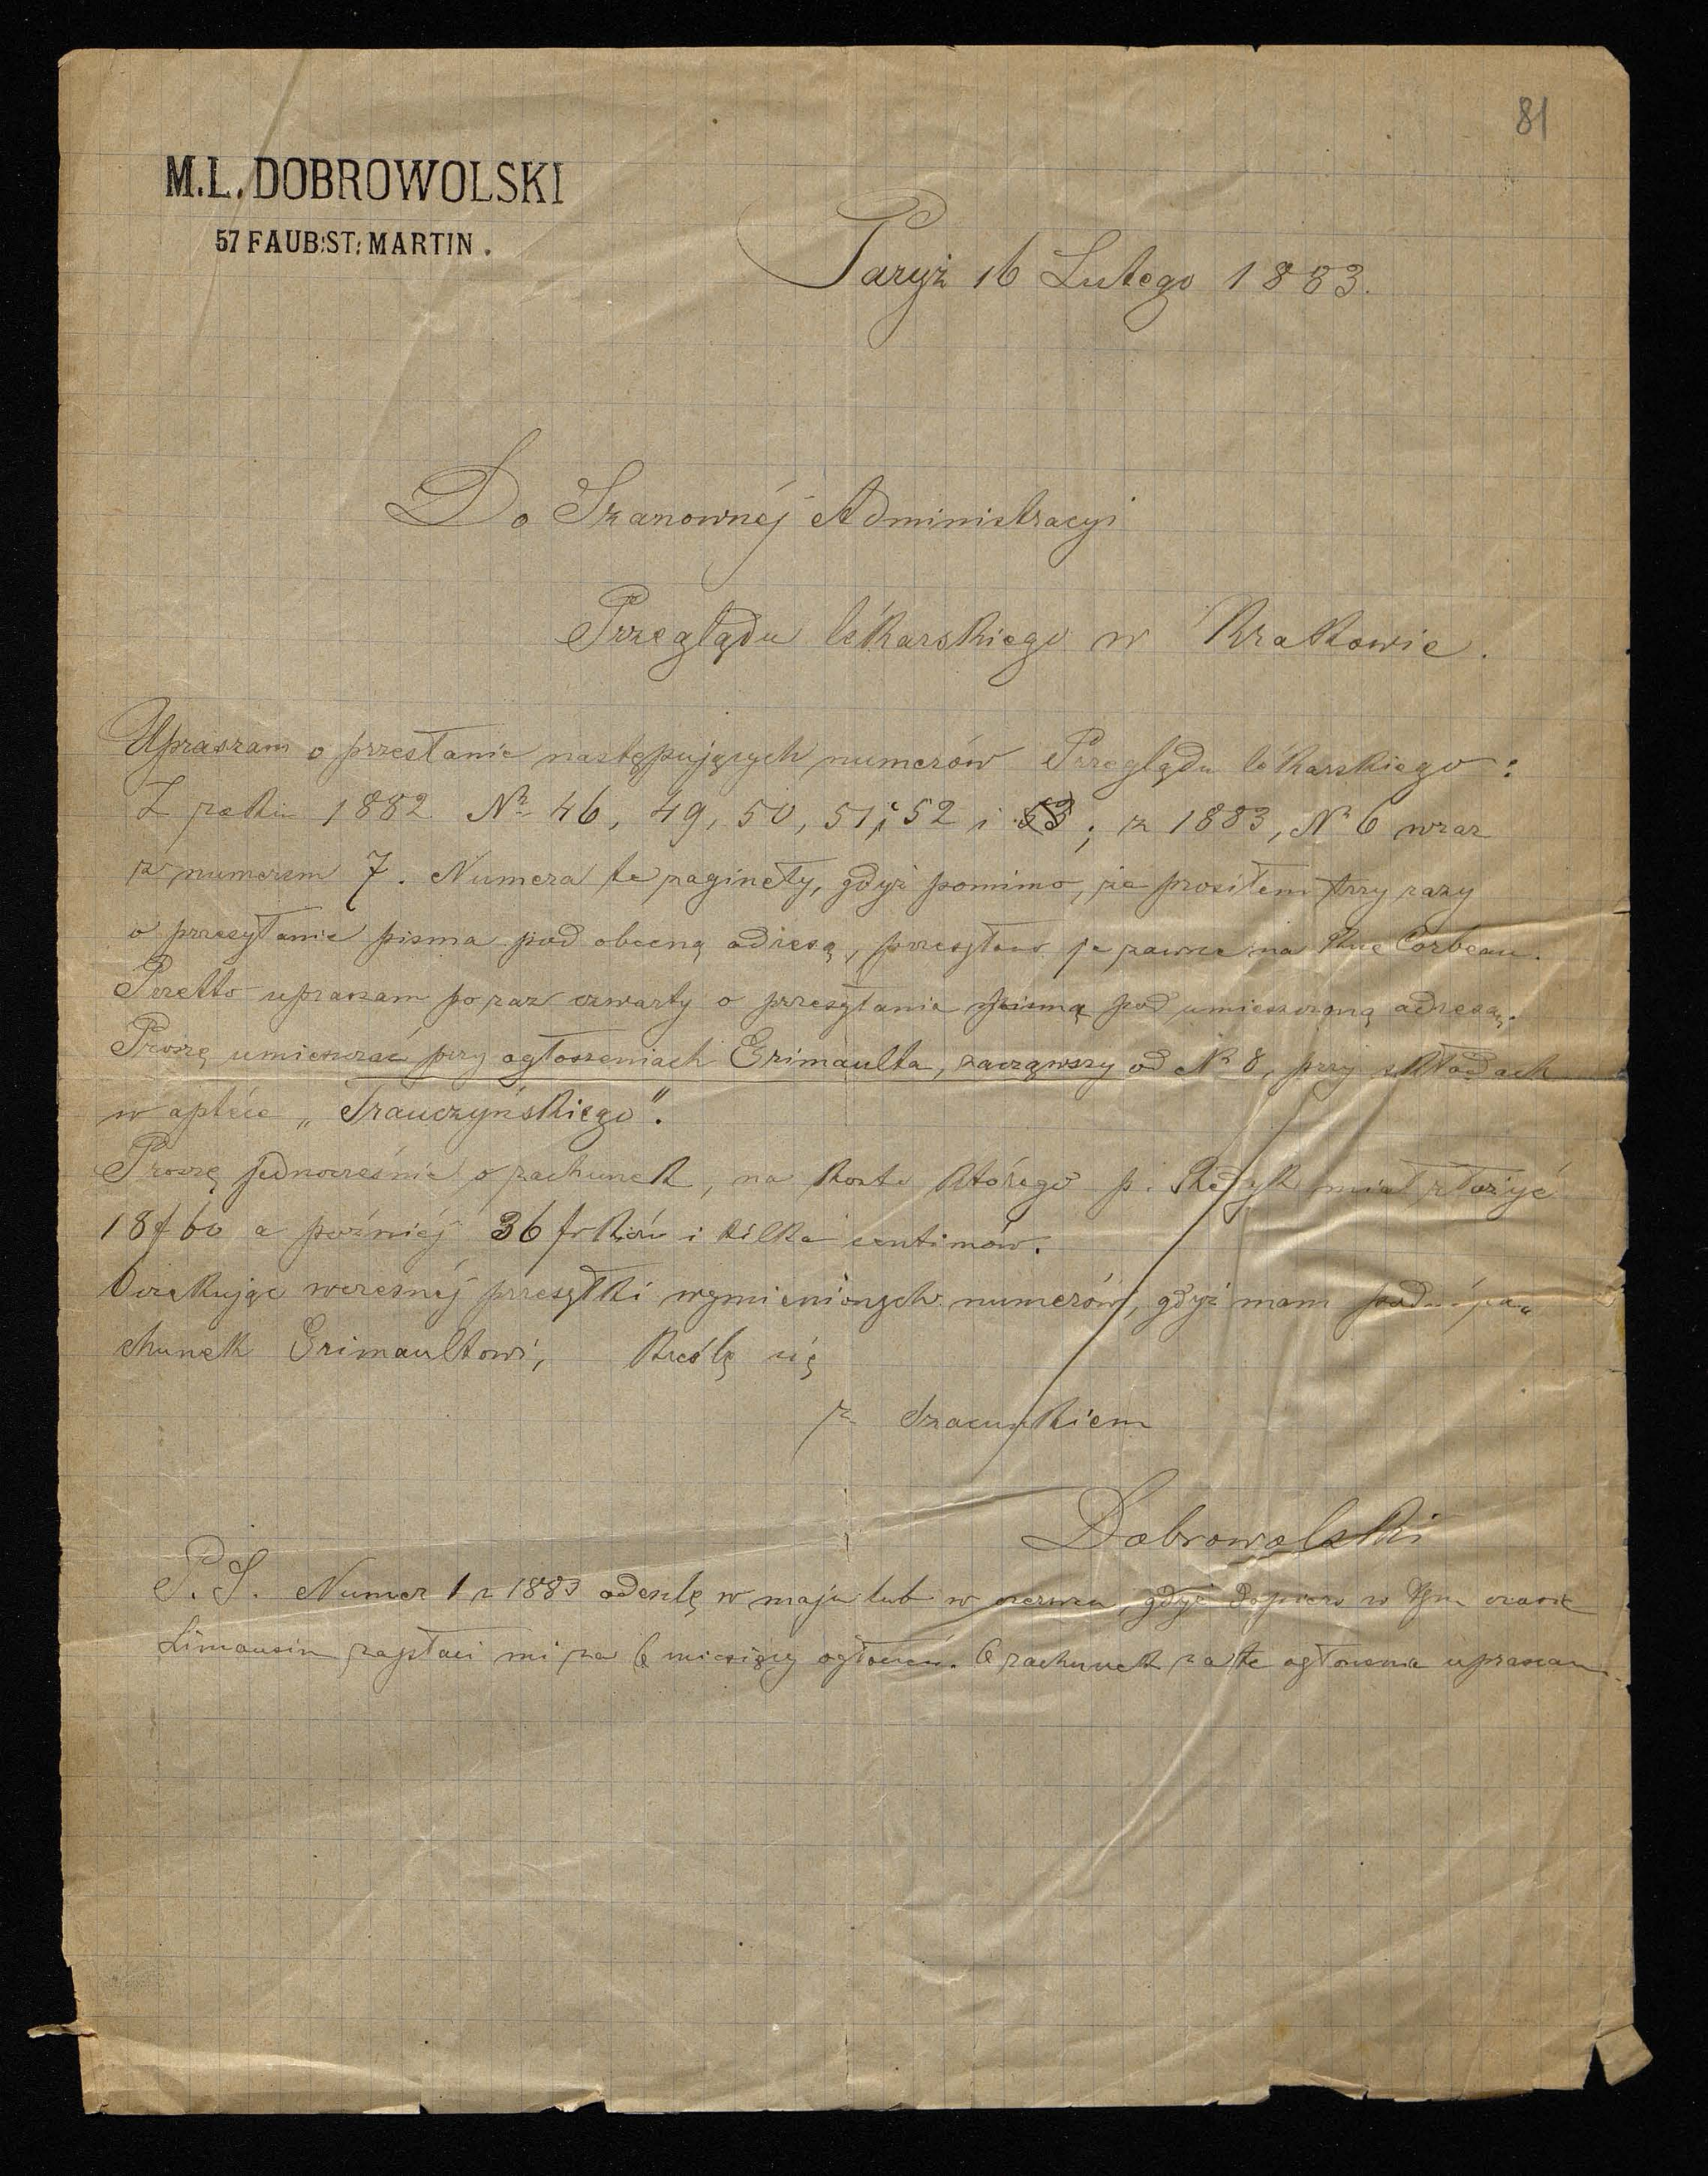 81
M.L. DOBROWOLSKI
57 FAUB: ST: MARTIN.
Paryż 16 Lutego 1883.
Do Szanownéj Administracyi
Przeglądu lékarskiego w Krakowie.
Upraszam o przesłanie następujących numerów Przeglądu lékarskiego:
Z roku 1882 Nr 46, 49, 50, 51, i 52 i 53; z 1883, Nr 6 wraz
z numerem 7. Numera te zaginęły, gdyż pomimo, że prosiłem trzy razy
o przesyłanie pisma pod obecną adresą, przesyłano je zawsze na Rue Corbeau.
Przetto upraszam po raz czwarty o przesyłanie pisma pod umieszczoną adresą.
Proszę umieszczać przy ogłoszeniach Grimaulta, zacząwszy od Nr 8, przy składach
w aptéce „Trauczyńskiego”.
Proszę jednocześnie o rachunek, na konto którego p. miał złożyć
18f 60 a poźniéj 36 frków i kilka centimów.
Oczekując wczesnéj przesyłki wymienionych numerów, gdyż mam ra„
chunek Grimaultowi, Kreślę się
z szacunkiem
Dobrowolski
P.S. Numer 1 z 1883 odeszlę w maju lub w czerwcu gdyż dopiero w tym czasie
Limousin zapłaci mi za 6 miesięcy ogłoszeń. O rachunek za te ogłoszenia upraszam.